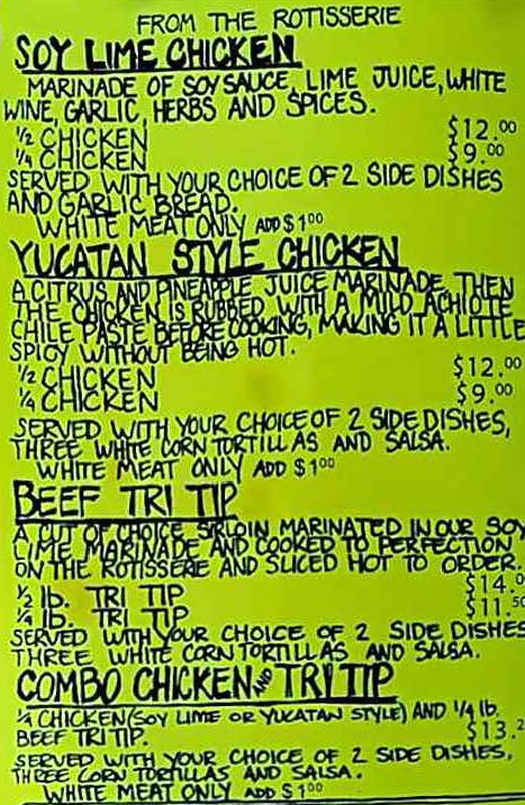 FROM THE ROTISSERIE
SOY LIME CHICKEN
MARINADE OF SOY SAUCE, LIME JUICE, WHITE
WINE, GARLIC, HERBS AND SPICES.
½ CHICKEN $12.00
¼ CHICKEN $9.00
SERVED WITH YOUR CHOICE OF 2 SIDE DISHES
AND GARLIC BREAD.
WHITE MEAT ONLY ADD $1.00
YUCATAN STYLE CHICKEN
A CITRUS AND PINEAPPLE JUICE MARINADE THEN
THE CHICKEN IS RUBBED WITH A MILD ACHIOTE
CHILE PASTE BEFORE COOKING, MAKING IT A LITTLE
SPICY WITHOUT BEING HOT.
½ CHICKEN $12.00
¼ CHICKEN $9.00
SERVED WITH YOUR CHOICE OF 2 SIDE DISHES,
THREE WHITE CORN TORTILLAS AND SALSA.
WHITE MEAT ONLY ADD $1.00
BEEF TRI TIP
A CUT OF CHOICE SIRLOIN MARINATED IN OUR SOY
LIME MARINADE AND COOKED TO PERFECTION
ON THE ROTISSERIE AND SLICED HOT TO ORDER.
½ lb. TRI TIP $14.
¼ lb. TRI TIP $11.50
SERVED WITH YOUR CHOICE OF 2 SIDE DISHES
THREE WHITE CORN TORTILLAS AND SALSA.
COMBO CHICKEN AND TRI TIP
¼ CHICKEN (SOY LIME OR YUCATAN STYLE) AND 1/4 lb.
BEEF TRI TIP. $13.2
SERVED WITH YOUR CHOICE OF 2 SIDE DISHES,
THREE CORN TORTILLAS AND SALSA.
WHITE MEAT ONLY ADD $1.00